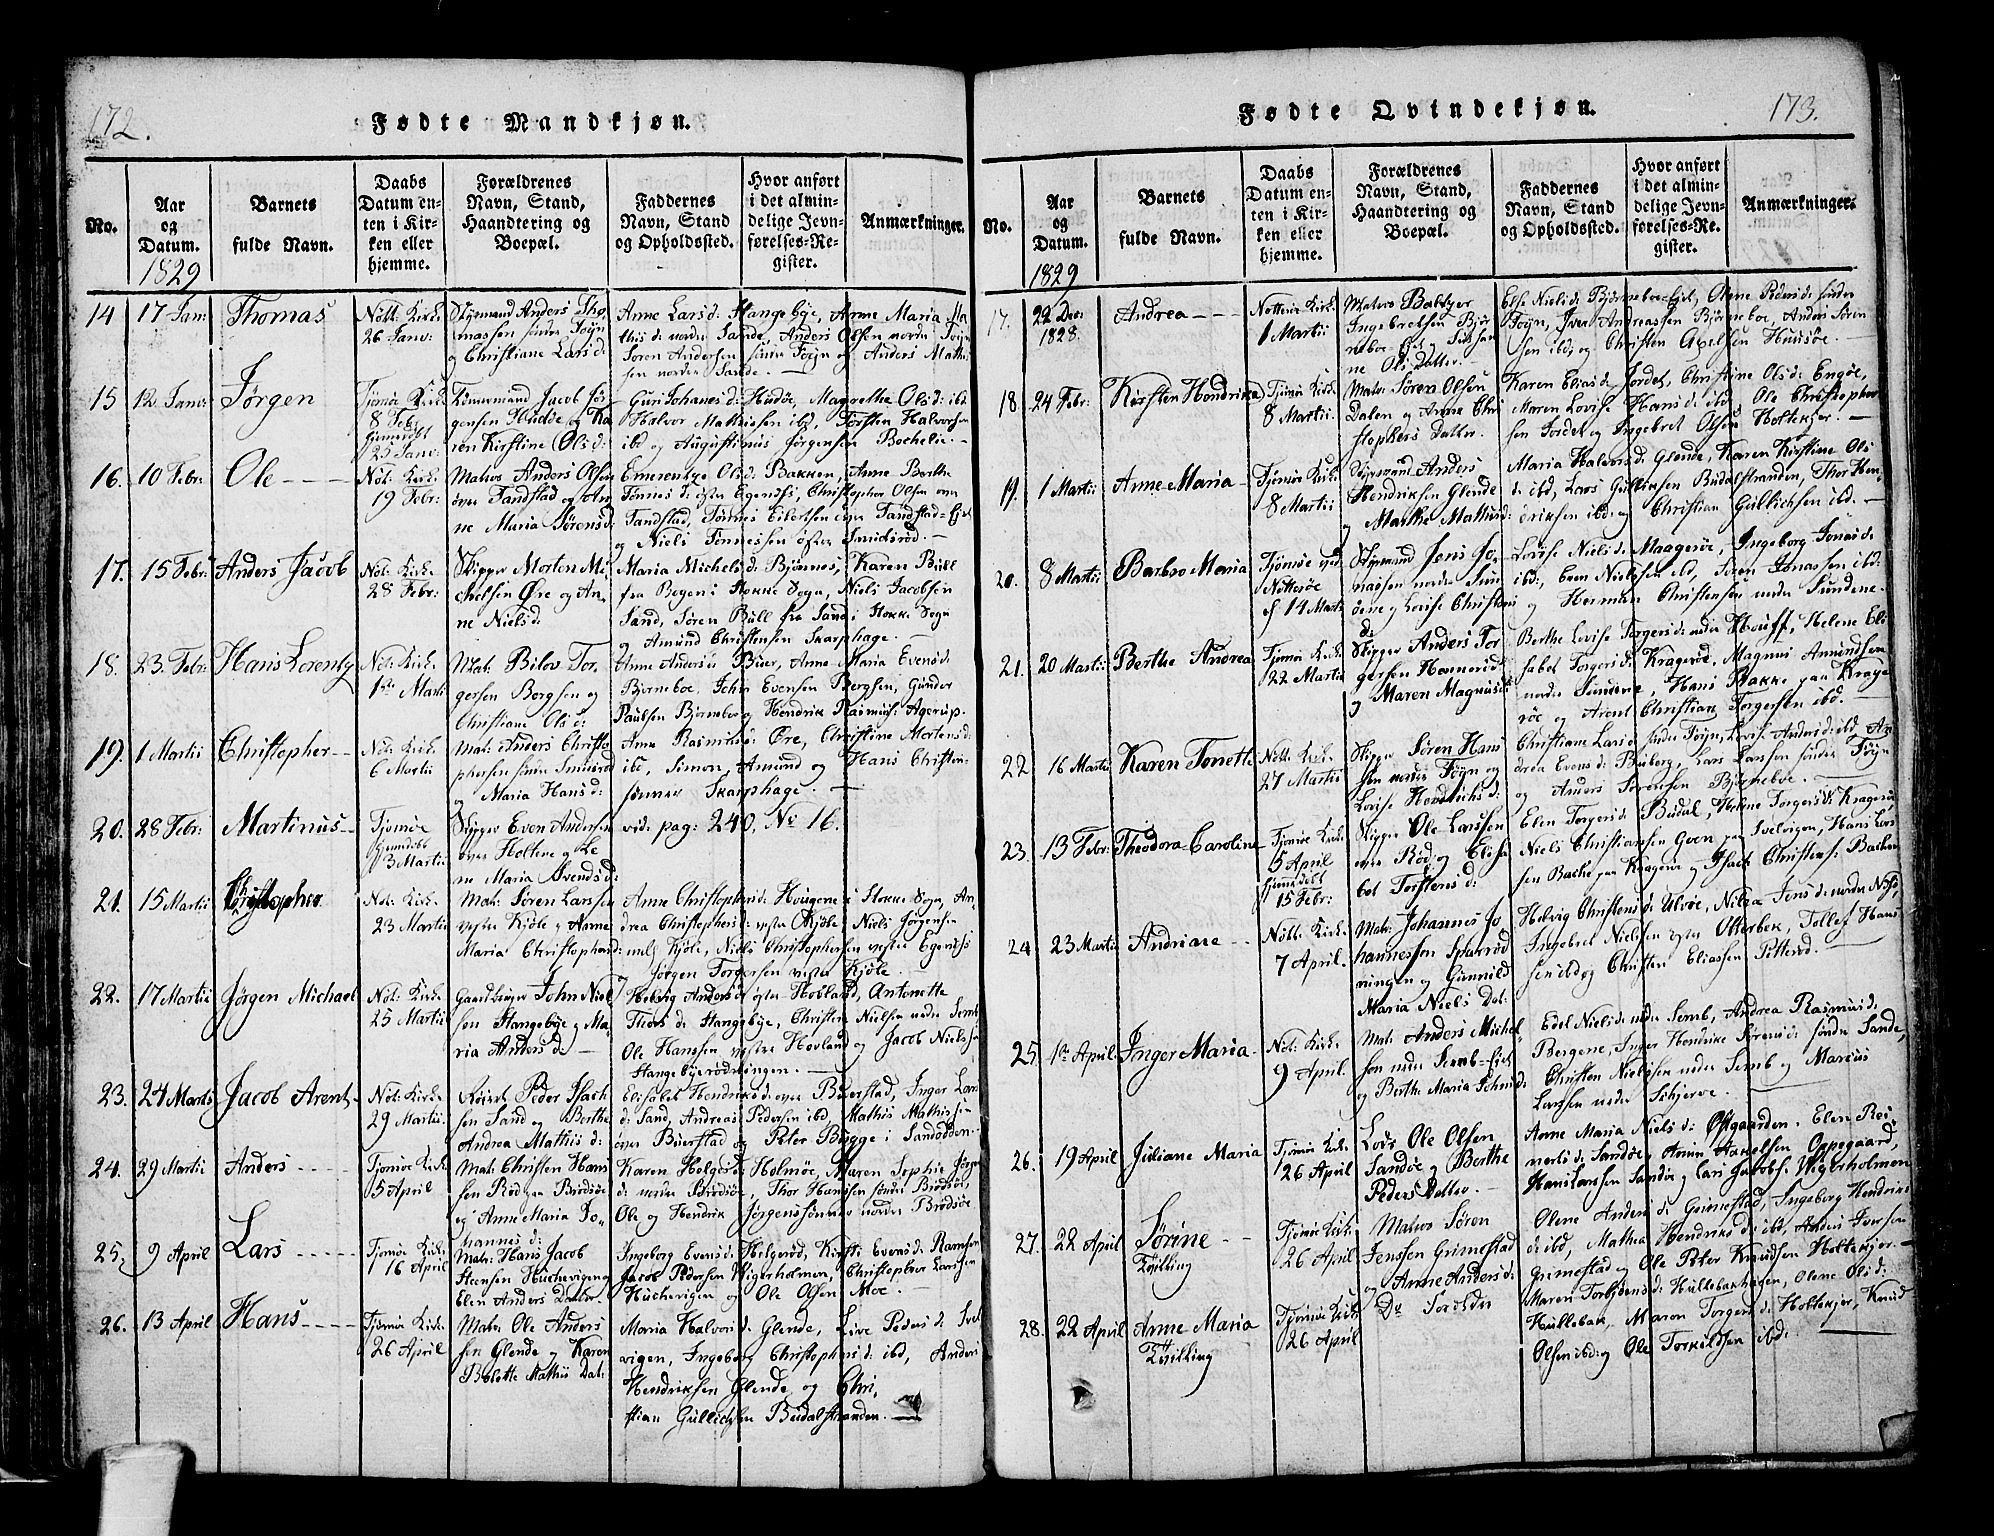 172.
Fødte Mandkjøn.
No.
Aar og Datum.
1829
Barnets fulde Navn.
Daabs Datum enten i Kirken eller hjemme.
Forældrenes Navn, Stand, Haandtering og Boepæl.
Faddernes Navn, Stand og Opholdssted.
Hvor anført i det almindelige Jevnførelses-Register.
Anmærkninger.
14 17 Jan: Thomas Nött. Kirk: 26 Janv:
Anders Thomassen söndre Föyn og Christiane Larsd:
Anne Larsd: Hangebye, Anne Maria Mathisd: nordre Sande, Anders Olsen nordre Föyn
Sören Andersen söndre Föyn og Anders Mathisen nordre Sande. —
15 12 Janv: Jörgen Tjömöe Kirk: 8 Febr hjemdöbt 25 Janv:
Jacob Jörgensen Hudöe og Karen Kirstine Olsd:
Guri Johanesd: Hudöe, Magrethe Olsd: ibd
Halvor Mathiesen ibd, Torsten Halvorsen
ibd og Augustinus Jörgensen Bochelie. —
16. 10 Febr: Ole Nöt: Kirk: 19 Febr:
Matros Anders Olsen övre Tandstad og Anne Maria Sörensd:
Emerentze Olsd: Bakken, Anne Berthe
Tönnesd: östre Egenæss, Christopher Olsen övre
Tandstad, Tönnes Eibertsen övre Tandstad-Eje
og Niels Tönnessen östre Smidsröd. —
17. 15 Febr: Anders Jacob Nöt: Kirk: 28 Febr:
Skipper Morten Michelsen Öre og Anne Nielsd:
Maria Michelsd: Bjönnes, Karen Büll
fra Bogen i Stokke Sogn, Niels Jacobsen
Sand, Sören Büll fra Sand i Stokke Sogn
og Amund Christensen Skarphage. —
18. 23. Febr: Hans Lorentz Nöt: Kirk: 1ste Marti
Mat: Bilov Torgersen Borgsen og Christiane Olsd:
Anne Andersd: Buer, Anne Maria Evensd:
Bjorneboe, John Evensen Bergsen, Gunder
Paulsen Bjorneboe og Hendrik Rasmus: Agerup.
19. 1 Martii Christopher Nöt: Kirk: 6 Martii
Mat: Anders Christophersen söndre Smidsröd og Maria Hansd:
Anne Rasmusd: Öre, Christine Mortensd:
ibd, Simon, Amund og Hans Christensönner Skarphage. —
20. 28 Febr: Martinus Tjomöe hjemdöbt 3 Martii
Skipper Even Andersen övre Holtene og Lene Maria Svendsd:
vid: pag: 240, No 16.
21. 15 Martii Christopher Nöt: Kirk: 23 Martii
Mat: Sören Larsen vestre Kjöle og Anne Maria Christophersd:
Anne Christophersd: Hougene i Stokke Sogn, Andrea Christophersd: vestre Kjöle, Niels Jörgens:
mel: Kjöle, Niels Christophersen vestre Egenæss
Jörgen Torgersen vestre Kjöle.
22. 17 Martii Jörgen Michael Nöt: Kirk: 25 Martii
Gaardbruger John Nielsen Hangebye og Maria Andersd: —
Helvig Andersd: östre Hovland, Antonette
Thorsd: Hangebye, Christen Nielsen nedre Semb
Ole Hanssen vestre Hovland og Jacob Nielsen
Hangebyerödningen. —
23. 24 Martii Jacob Arent Nöt: Kirk: 29 Martii
Peder Isachsen Sand og Berthe Andrea Mathisd:
Elisabet Hendriksd: övre Buerstad, Inger Larsd: Sand, Andreas Pedersen ibd, Mathis Mathis:
övre Buerstad og Peter Bugge i Sandodden.
24. 29 Martii Anders Tjomöe Kirk: 5 April
Mat: Christen Hansen Röd paa Brödsöe og Anne Maria Johannesd:
Karen Holgersd: Holmöe, Maren Sophie Jörgensd: nordre Brödsöe, Thor Hansen söndre Brödsöe,
Ole og Hendrik Jörgenssönner nordre Brödsöe
25. 9 April Lars Tjomöe Kirk: 16 April
Mat: Hans Jacob Steensen Huchevigen og Elen Anders Datter.
Ingeborg Evensd: Holgeröd, Kirsti Evensd: Ramsen
Jacob Pedersen Vigerholmen, Christopher Larssen
Huchevigen og Ole Olsen Moe. —
26. 13 April Hans Tjömöe Kirk: 26 April
Matr: Ole Andersen Glende og Karen Bolette Mathis Dat:
Maria Halvorsd: Glende, Live Pedersd: Svelvigen, Ingeborg Christophersd: ibd, Anders
Hendriksen Glende og Christian Gullichsen Budalstranden. —
173.
Fødte Qvindekjøn.
No.
Aar og Datum.
1829
Barnets fulde Navn.
Daabs Datum enten i Kirken eller hjemme.
Forældrenes Navn, Stand, Haandtering og Boepæl.
Faddernes Navn, Stand og Opholdsted.
Hvor anført i det almindelige Jevnførelses-Register.
Anmærkninger.
17. 22 Dec: 1828. Andrea Nötteröe Kirk: 1 Martii
Matros Baltzer Ingebretsen Björneboe-Eiet og Olsdatter
Else Nielsd: Björneboe-Eiet, Olene Pedersd: söndre
Föyn, Iver Andreassen Björneboe, Anders Sörensen ibd, og Christen Axelsen Huusöe. —
18. 24 Febr: Kirsten Hendrikke Tjömöe Kirk: 8 Martii
Matr: Sören Olsen Dalen og Anne Christophers Datter. —
Karen Eliasd: Jordet, Christine Olsd: Engöe,
Maren Lovise Hansd: ibd Ole Christophersen Jordet og Ingebret Olsen Holtekjer. —
19. 1 Martii Anne Maria Tjömöe Kirk: 8 Martii
Anders Hendriksen Glende og Marthe Mathisd:
Maria Halvorsd: Glende, Karen Kirstine Olsd: ibd, Lars Gulliksen Budalstranden, Thor Hendriksen ibd: og Christian Gullichsen ibd. —
20. 8 Martii Barbro Maria Tjömöe ved Nötteröe d. 14 Marti
Jens Jonassen nordre Sundene og Lovise Christensd:
Lovise Nielsd: Maageröe, Ingeborg Jonasd:
ibd:, Even Nielssen ibd, Sören Jonassen ibd:
og Herman Christensen nedre Sundene.
21. 20 Martii Berthe Andrea Tjomöe Kirk: 22 Martii
Skipper Anders Torgersen Honneröd og Maren Magnusd:
Berthe Lovise Torgersd: nedre Houff, Helene Elisabet Torgersd: Krageröe, Magnus Amundsen
nordre Sundene, Hans Bakke paa Krageröe og Arent Christian Torgersen ibd. —
22 16 Martii Karen Tonette Nött: Kirk: 27 Martii
Skipper Sören Hansen nordre Föyn og Lovise Hendrichsd:
Christiane Larsd: söndre Föyn, Lovise Andersd: ibd, Andrea Evensd: Buberg, Lars Larssen söndre Föyn
og Anders Sörensen Björneboe. —
23. 13 Febr: Theodora-Caroline Tjömöe Kirk: 5 April hjemdöbt 15 Febr:
Skipper Ole Larssen övre Röd og Elisabet Torstensd:
Elen Torgersd: Budal, Helene Torgersd: Krageröe
Niels Christiansen Goen paa Svelvigen, Hans Larssen Bache paa Krageröe og Isach Christens: Bachen
24. 23 Martii Andriane Nött: Kirk: 7 April.
Matr: Johannes Johannesson og Gunnild Maria Niels Dat:
Helvig Christensd: Ulvöe, Nilia Jensd: nordre Nesö,
Ingebret Nielssen östre Otterbek, Tollef Hanssen ibd og Christen Eliassen Petterød.
25. 1ste April Inger Maria Nöt: Kirk: 9 April.
Mat: Anders Michelsen nedre Semb-Eiet og Berthe Maria
Edel Nielsd: nedre Semb, Andrea Rasmusd:
Bergene, Inger Hendrikke Sörensd: söndre Sande,
Christen Nielssen nedre Semb og Marcus
Larssen nedre Schjerve.
26. 19 April Juliane Maria Tjömöe Kirk: 26 April
Lods Ole Olsen Sandöe og Berthe Peders Datter. —
Anne Maria Nielsd: Östgaarden, Elen Reinertsd: Sandöe, Axelsen Oppegaard,
Hans Larssen Sandöe og Lars Jacobs: Vigerholmen
27. 22 April Sörine Tvilling Tjömöe Kirk: 26 April
Matros Sören Jenssen Grimestad og Anne Andersd:
Olene Andersd: Grimestad, Ingeborg Hendriksd: ibd, Mathea Hendriksd: ibd, Anders Iversen
Grimestad og Ole Peter Knudsen Holtekjer. —
28. 22 April Anne Maria Tvilling Tjömöe Kirk: 26 April
Do Foreldre
Maren Torbjörnsd: Hullebakhagen, Olene Olsd:
Hullebak, Maren Torgersd: Holtekjer, Knud
Olsen ibd: og Ole Torkildsen ibd: —